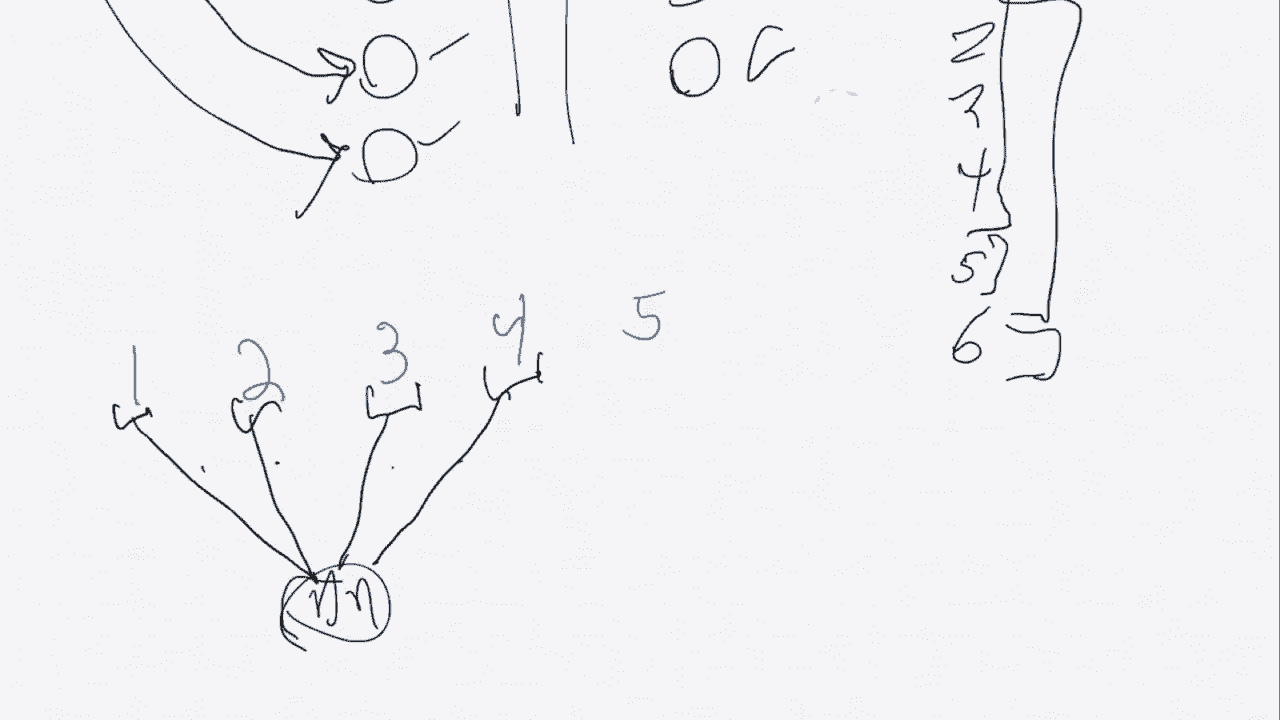 2
3
4
5
6
1 2 3 4 5